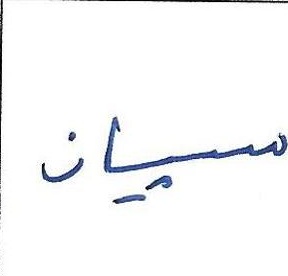 سپیان